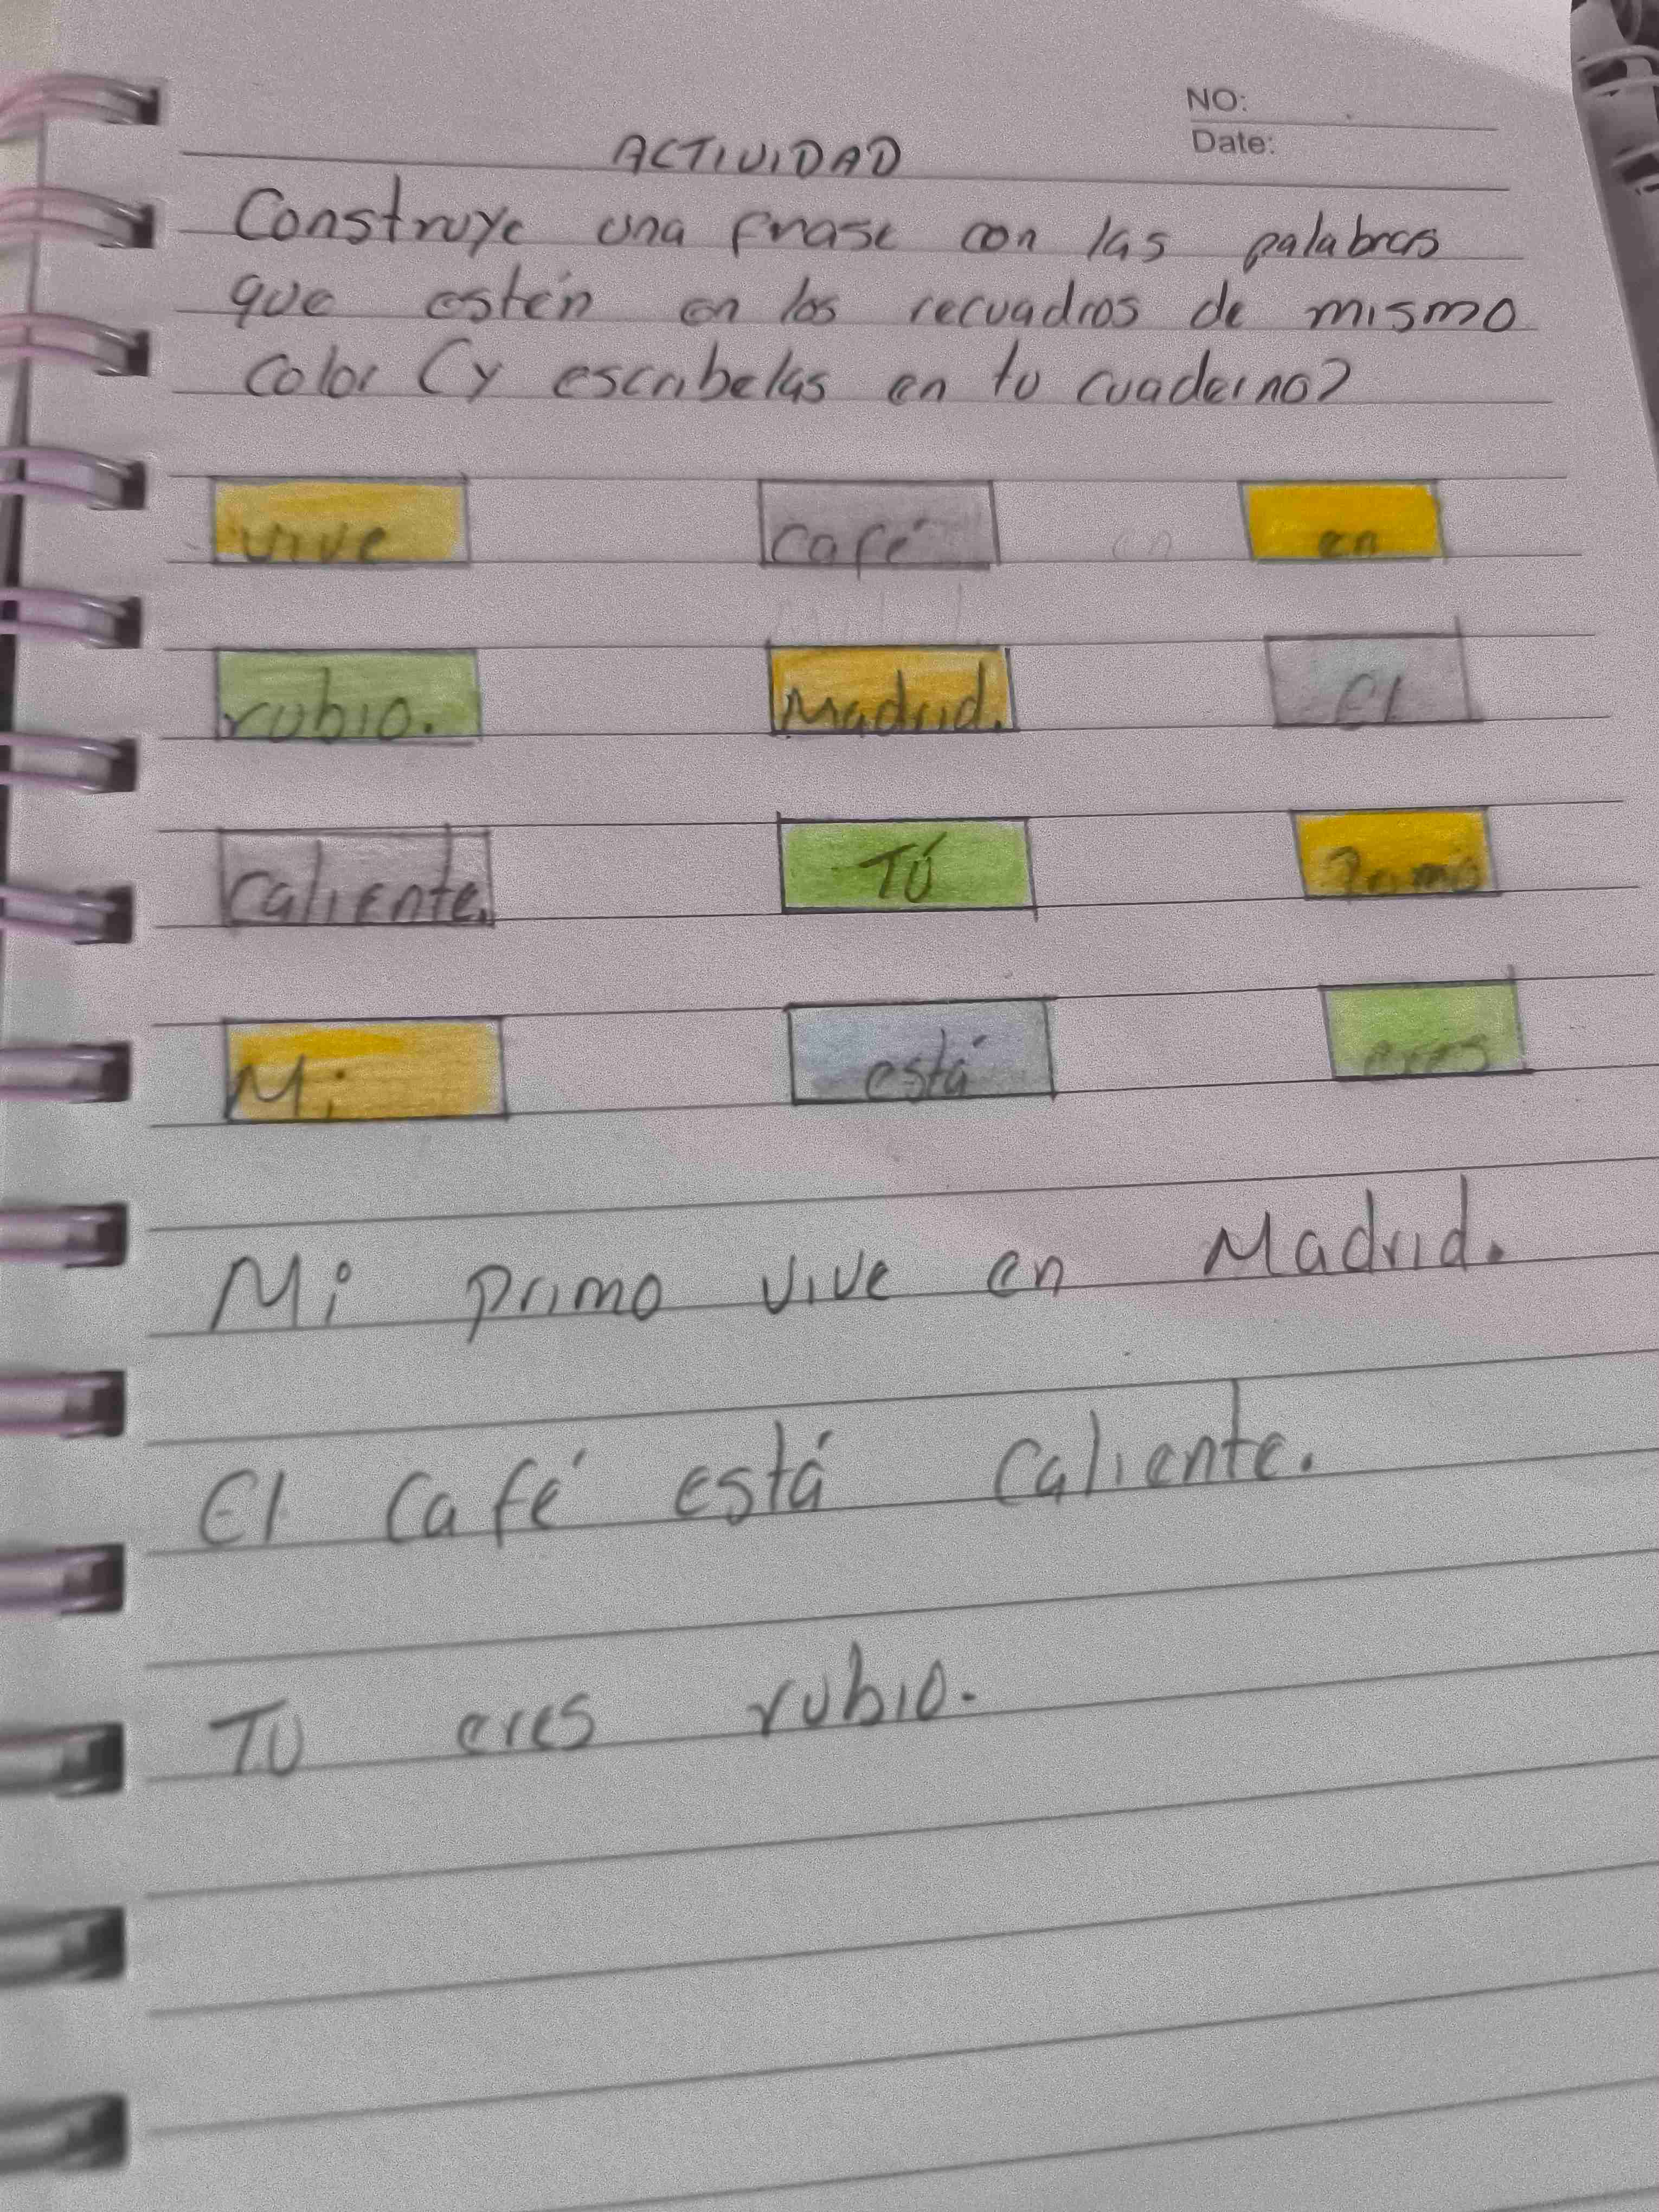 NO:
Date:
ACTIVIDAD
Construye una frase con las palabras
que estén en los recuadros de mismo
color (y escribelas en tu cuaderno)
vive café en en
rubio. Madrid. el
caliente. TÚ Primo
Mi está eres
Mi primo vive en Madrid.
El café está caliente.
TU eres rubio.